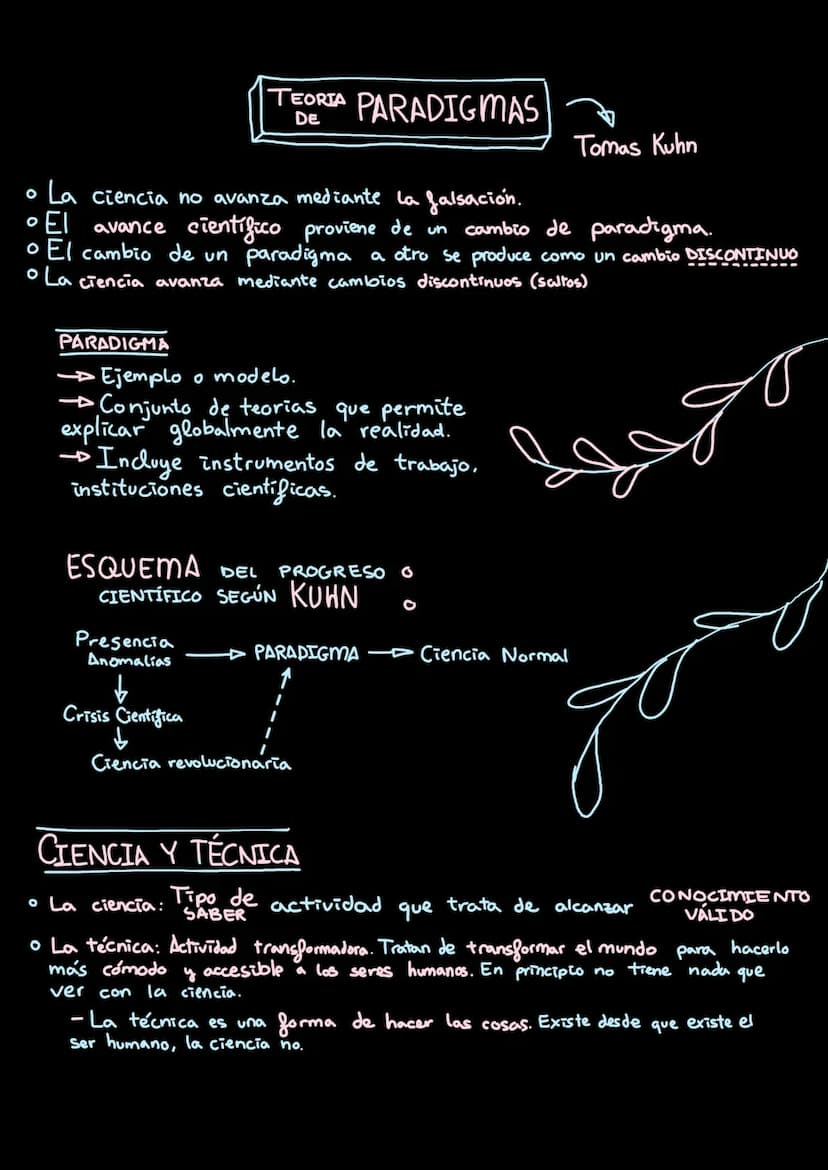 TEORIA DE PARADIGMAS
Tomas Kuhn
La ciencia no avanza mediante la falsación.
El avance científico proviene de un cambio de paradigma.
El cambio de un paradigma a otro se produce como un cambio DISCONTINUO
La ciencia avanza mediante cambios discontinuos (saltos)
PARADIGMA
→ Ejemplo o modelo.
→ Conjunto de teorías que permite
explicar globalmente la realidad.
→ Incluye instrumentos de trabajo,
instituciones científicas.
ESQUEMA DEL PROGRESO
CIENTÍFICO SEGÚN KUHN
Presencia
Anomalías → PARADIGMA → Ciencia Normal
Crisis Científica
Ciencia revolucionaria
CIENCIA Y TÉCNICA
La ciencia: Tipo de SABER actividad que trata de alcanzar CONOCIMIENTO VÁLIDO
La técnica: Actividad transformadora. Tratan de transformar el mundo para hacerlo
más cómodo y accesible a los seres humanos. En principio no tiene nada que
ver con la ciencia.
- La técnica es una forma de hacer las cosas. Existe desde que existe el
ser humano, la ciencia no.